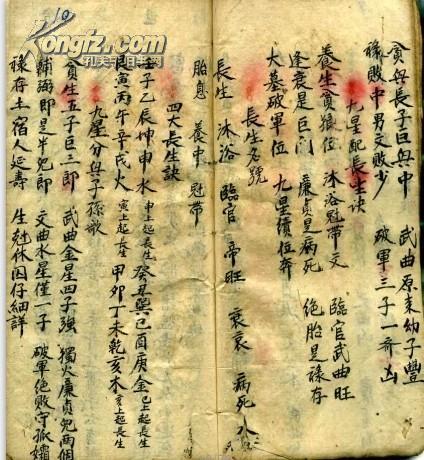 貪與長子巨與中　武曲原來幼子豐
祿敗中男文敗少　破軍三子一齊凶
九星配長生訣
養生貪狼位　沐浴冠帶文　臨官武曲旺
逢衰是巨門　廉貞是病死　絕胎是祿存
大墓破軍位　九星續位奔
長生名號
長生　沐浴　臨官　帝旺　衰　病死
胎息　養中　冠帶
四大長生訣
子乙辰坤申水　申上起長生　癸丑巽巳酉庚金　巳上起長生
寅丙午辛戌火　寅上起長生　甲卯丁未乾亥木　亥上起長生
九星分與子孫
貪生五子巨三郎　武曲金星四子強　獨火廉貞兄兩個
輔弼即是半兒郎　文曲水星僅一子　破軍絕敗守孤孀
祿存土宿人延壽　生尅休囚仔細詳
10
Kongfz.com
孔夫子旧书网